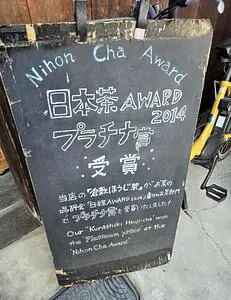 Nihon Cha Award
日本茶 AWARD
2014
プラチナ賞
受賞
当店の「倉敷ほうじ茶」がお茶の
品評会「日本茶AWARD2014」香りのお茶部門
で プラチナ賞を受賞いたしました!
Our "Kurashiki Houji-cha" won
the Platinum prize at the
"Nihon Cha Award"